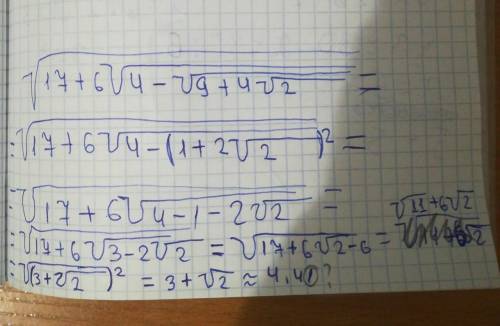 √(17+6√(4-√(9+4√2))) =
=√(17+6√(4-(1+2√2)))² =
=√(17+6√(4-1-2√2)) =
=√(17+6√(3-2√2)) = √(17+6√2-6) = √(11+6√2)
=√(3+√2)² = 3+√2 ≈ 4,41?